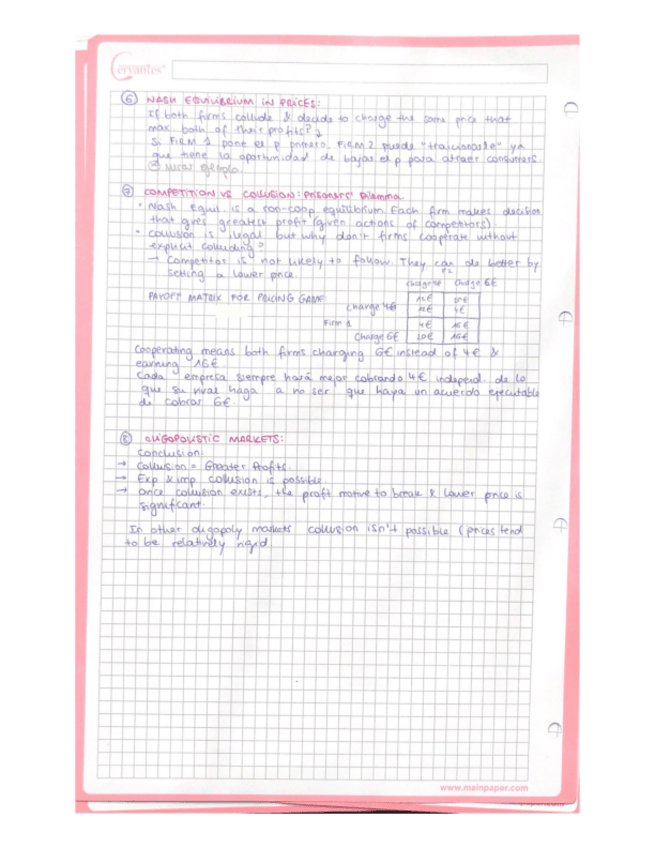 Cervantes
6 NASH EQUILIBRIUM IN PRICES:
If both firms collide & decide to charge the same price that
max. both of their profits?
Si FIRM 1 pone el p primero, FIRM 2 puede "traicionarle" ya
que tiene la oportunidad de bajar el p para atraer consumers.
7 COMPETITION VS COLLUSION: Prisoners' Dilemma
• Nash Equil. is a non-coop equilibrium. Each firm makes decision
that gives greatest profit (given actions of competitors).
• Collusion is illegal but why don't firms cooperate without
explicit colluding?
→ Competitor is not likely to follow. They can do better by
setting a lower price.
F2
Charge 4€ Charge 6€
PAYOFF MATRIX FOR PRICING GAME
Charge 4€ 12€ 20€
12€ 4€
Firm 1
4€ 16€
Charge 6€ 20€ 16€
Cooperating means both firms charging 6€ instead of 4€ &
earning 16€
Cada empresa siempre hará mejor cobrando 4€ independ. de lo
que su rival haga a no ser que haya un acuerdo ejecutable
de cobrar 6€.
8 OLIGOPOLISTIC MARKETS:
Conclusion:
→ Collusion = Greater Profits.
→ Exp & imp collusion is possible
→ Once collusion exists, the profit motive to break & lower price is
significant.
In other oligopoly markets collusion isn't possible (prices tend
to be relatively rigid
www.mainpaper.com